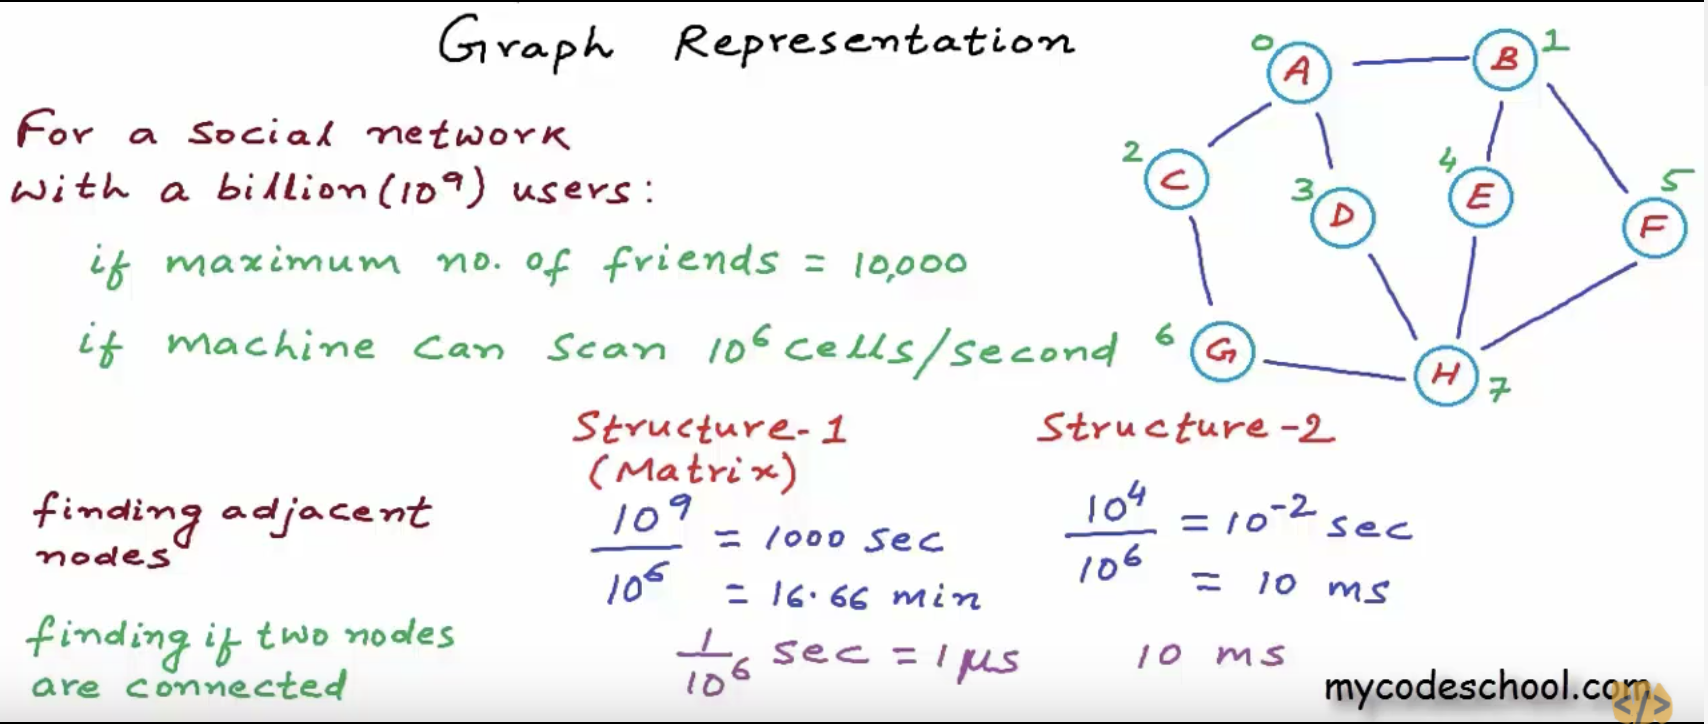 Graph Representation
For a social network
with a billion(10⁹) users:
if maximum no. of friends = 10,000
if machine can scan 10⁶ cells/second
0
A
B
1
2
C
3
D
4
E
5
F
6
G
H
7
Structure-1
(Matrix)
Structure-2
finding adjacent
nodes
10⁹/10⁶ = 1000 sec
= 16.66 min
10⁴/10⁶ = 10⁻² sec
= 10 ms
finding if two nodes
are connected
1/10⁶ sec = 1 μs
10 ms
mycodeschool.com
</>